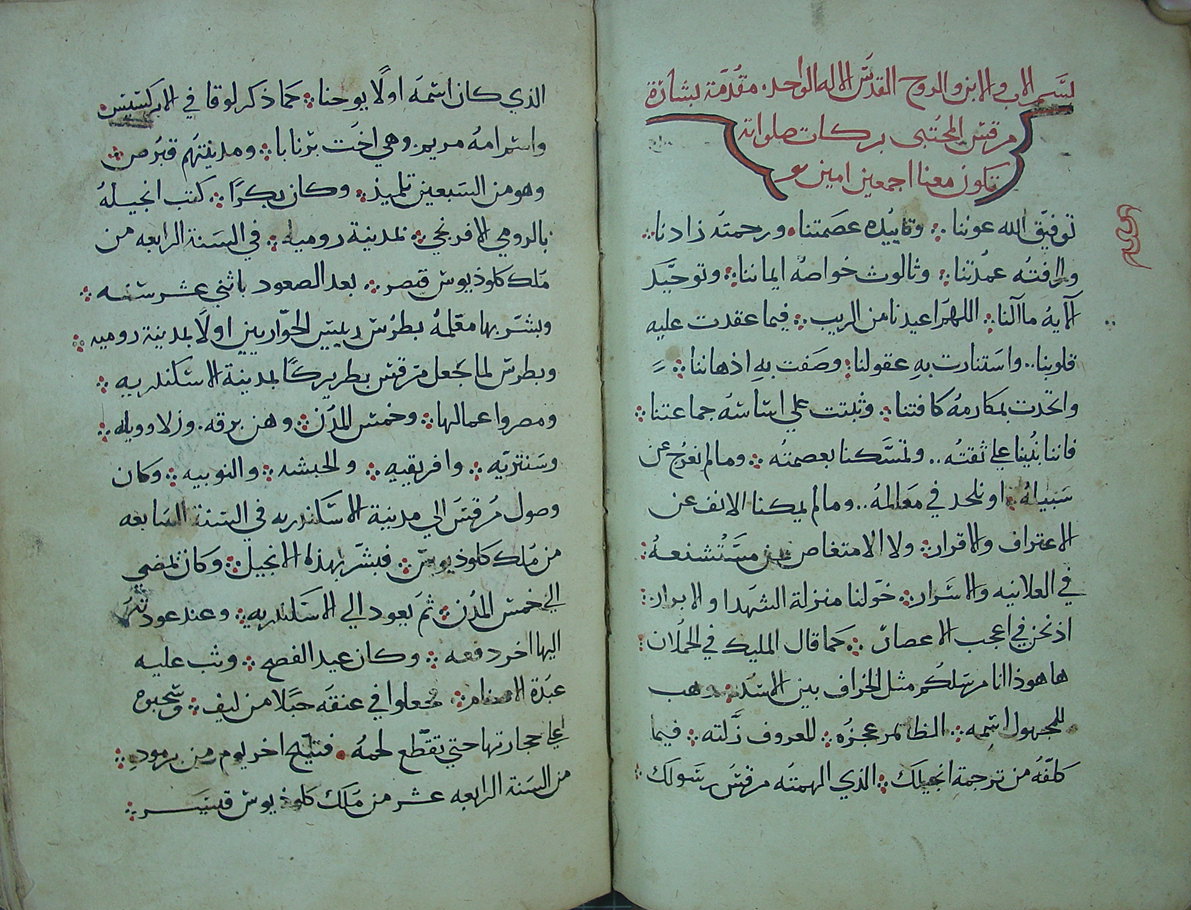 بسم الاب والابن والروح القدس الاله الواحد. مقدمة بشارة
مرقس المجتبى بركات صلواته
تكون معنا اجمعين امين
توفيق الله عوننا وتاييده عصمتنا ورحمته زادنا
ورافته عمدتنا وثالوث خواصه ايماننا وتوحيد
الايه ماآلنا اللهم اعيدنا من الريب فيما عقدت عليه
قلوبنا.. واستنارت به عقولنا وصفت به اذهاننا
واتحدت بمكارمه كافتنا وثبتت علي اساسه جماعتنا
فاننا بنينا علي ثقته.. وتمسكنا بعصمته ومالم نعرج عن
سبيله او نلحد في معالمه.. ومالم يمكنا الانف عن
الاعتراف والاقرار ولا الامتغاص عن مستشنعه
في العلانيه والاسرار خولنا منزلة الشهدا والابرار
اذ نحن في اعجب الاعصار كما قال المليك في الحملان
ها هوذا انا مرسلكم مثل الخراف بين الاسد وهب
للمجهول اسمه الظاهر عجزه المعروف زلته فيما
كلفه من ترجمة انجيلك الذي الهمته مرقس رسولك
الذي كان اسمه اولًا يوحنا كما ذكر لوقا في الابركسيس
واسم امه مريم. وهي اخت برنابا ومدينتهم قبرص
وهو من السبعين تلميذ وكان بكرًا كتب انجيله
بالرومي الافرنجي بمدينة روميه في السنة الرابعه من
ملك كلوذيوس قيصر بعد الصعود باثني عشر سنه
وبشر بها معلمه بطرس رييس الحواريين اولًا بمدينة روميه
وبطرس لما جعل مرقس بطريركًا لمدينة الاسكندريه
ومصر واعمالها وخمس المدن وهن برقه. وزلا وويله
وسنتريه وافريقيه والحبشه والنوبيه وكان
وصول مرقس الي مدينة الاسكندريه في السنة السابعه
من ملك كلوذيوس فبشر بهذه الانجيل وكان يمضي
الي خمس المدن ثم يعود الي الاسكندريه وعند عودته
اليها اخر دفعه وكان عيد الفصح وثب عليه
عبدة الاصنام فجعلوا في عنقه حبلًا من ليف وسحبوه
علي حجارتها حتي تقطع لحمه فتنيح اخر يوم من برموده
من السنة الرابعه عشر من ملك كلوذيوس قيصر